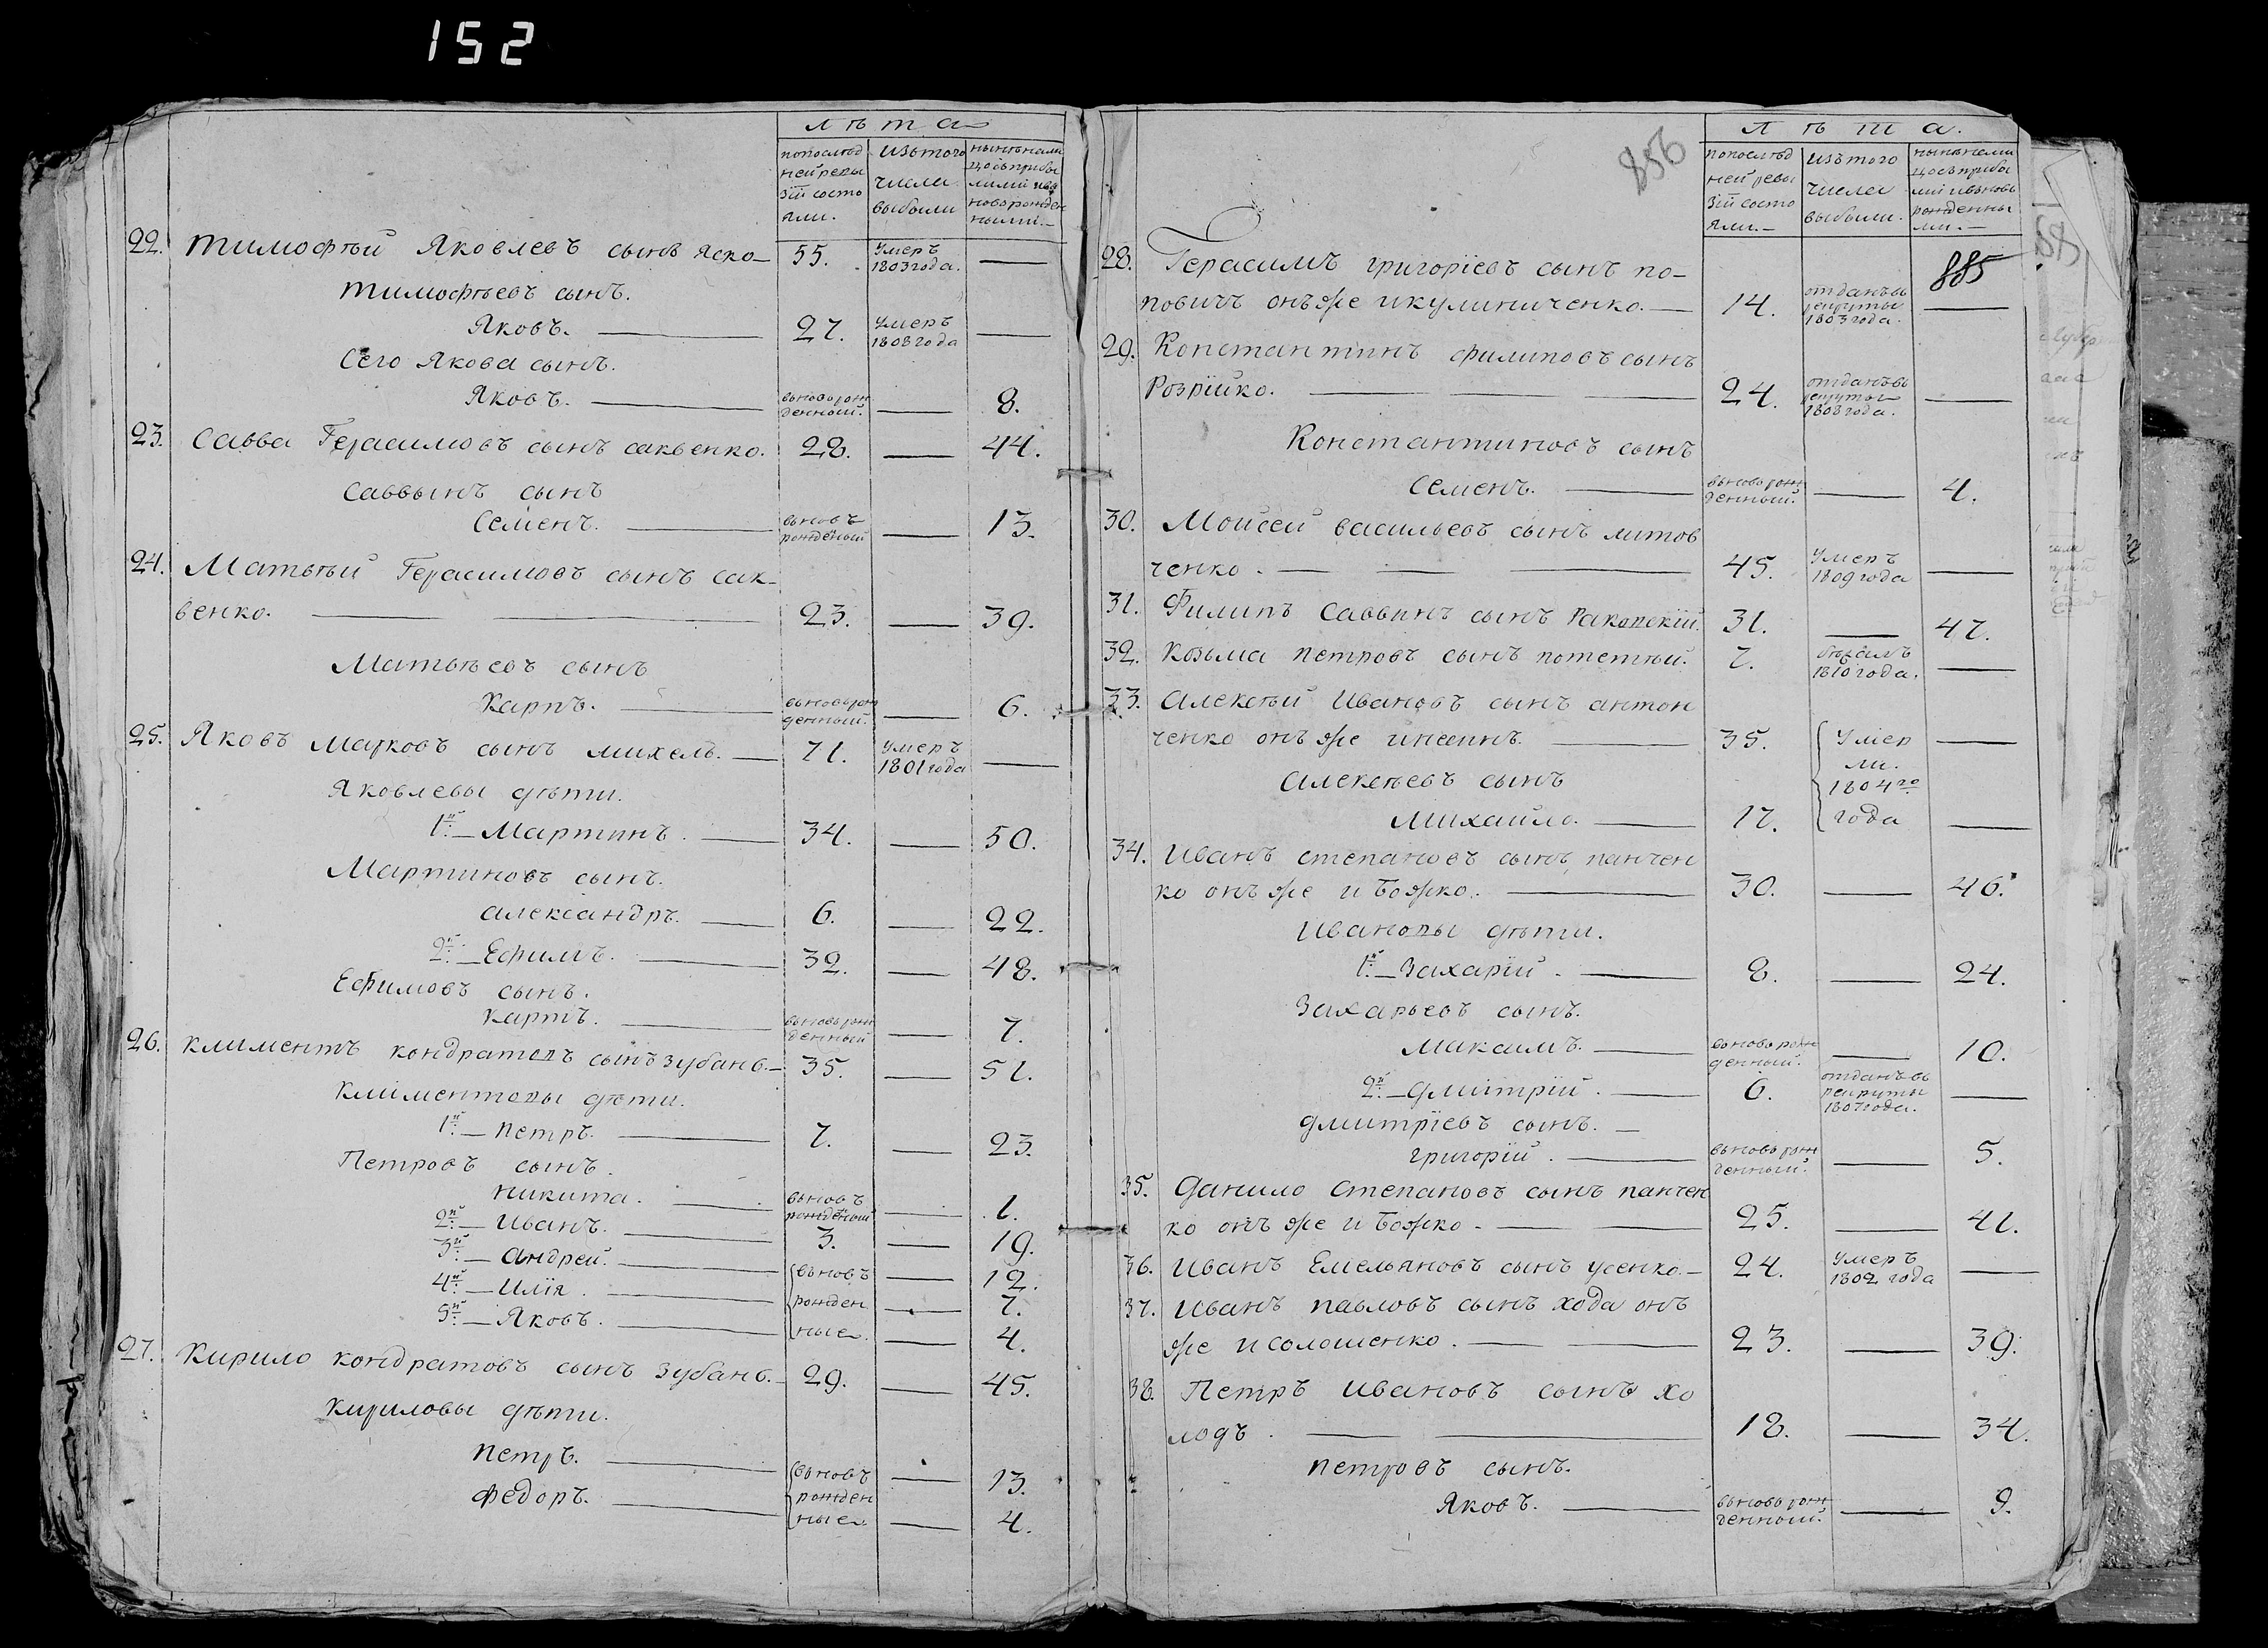 152
лѣта
попослѣд
ней реви
зіи состо
яли.
изътого
числа
выбыли
нынѣнали
цо съприбы
лыми ивъ
новорожден
ными.
22. Тимофѣй Яковлевъ сынъ яско 55. Умеръ 1803 года. —
Тимофѣевъ сынъ.
Яковъ. — 27. Умеръ 1808 года —
Сего Якова сынъ.
Яковъ. — вьноворож денный. — 8.
23. Савва Герасимовъ сынъ саквенко. 28. — 44.
Саввынъ сынъ
Семенъ. — вьновъ рожденый — 13.
24. Матвѣй Герасимовъ сынъ сак-
венко. — 23. — 39.
Матвѣевъ сынъ
Карпъ. — вьновърож денный. — 6.
25. Яковъ Марковъ сынъ михель. — 71. умеръ 1801 года —
Яковлевы дѣти.
1й — Мартинъ. — 34. — 50.
Мартиновъ сынъ.
александръ. — 6. — 22.
2й — Ефимъ. — 32. — 48.
Ефимовъ сынъ.
Карпъ. — вьновьрож денный — 7.
26. климентъ кондратовъ сынъ зубанъ. — 35. — 51.
Климентовы дѣти.
1й — петръ. — 7. — 23.
Петровъ сынъ.
никита. — вьновъ рожденый — 1.
2й — Иванъ. — 3. — 19.
3й — андрей. — вьновъ — 12.
4й — Илія. — рожден — 7.
5й — Яковъ. — ные. — 4.
27. Кирило кондратовъ сынъ зубанъ. — 29. — 45.
Кириловы дѣти.
петръ. — вьновъ — 13.
федоръ. — рожден ные. — 4.
856
лѣта.
попослѣд
ней реви
зіи состо
яли. —
изътого
числа
выбыли.
нынѣнали
цо съприбы
лми ивьновь
рожденны
ми. —
885
28. Герасимъ григорїевъ сынъ по-
повичъ онъже икулиниченко. — 14. отданъвъ рекруты 1803 года. —
29. Константинъ филиповъ сынъ
Розрїйко. — 24. отданъвъ рекруты 1808 года. —
Константиновъ сынъ
Семенъ. — вьновь рож денный. — 4.
30. Моисей васильевъ сынъ литов
ченко. — 45. Умеръ 1809 года —
31. Филипъ Саввинъ сынъ Раковскїй. 31. — 47.
32. Козьма петровъ сынъ потетѣй. 7. бѣжалъ 1810 года. —
33. алексѣй Ивановъ сынъ антон
ченко онъ же — 35. Умер —
ли.
алексѣевъ сынъ 1804го
михайло. — 17. года —
34. Иванъ степановъ сынъ панчен
ко онъ же и Божко. — 30. — 46.
Ивановы дѣти.
1й — Захарїй. — 8. — 24.
Захарьевъ сынъ.
Максимъ. — вьновь рож денный. — 10.
2й — дмитрїй. — 6. отданъвъ рекруты 1807 года. —
дмитрїевъ сынъ. —
григорїй. — вьновь рож денный. — 5.
35. данило степановъ сынъ панчен
ко онъ же и Божко. — 25. — 41.
36. Иванъ Емельяновъ сынъ усенко. — 24. Умеръ 1802 года —
37. Иванъ павловъ сынъ хода онъ
же и солошенко. — 23. — 39.
38. Петръ Ивановъ сынъ хо
лодъ. — 18. — 34.
петровъ сынъ.
Яковъ. — вьновь рож денный. — 9.